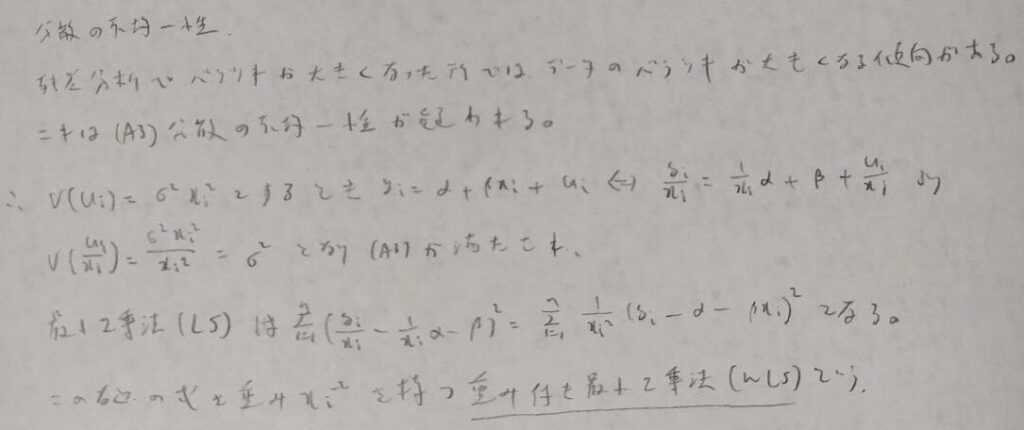 分散の不均一性.
分析でバラツキが大きくなった所ではデータのバラツキが大きくなる傾向がある。
これは(A3)分散の不均一性が言われる。
∴ V(ui) = σ²xi² とするとき yi = α + βxi + ui ⇔ yi/xi = 1/xi α + β + ui/xi より
V(ui/xi) = σ²xi²/xi² = σ² となり (A3)が満たされ、
最小2乗法(LS)は Σ_{i=1}^{n} (yi/xi − 1/xi α − β)² = Σ_{i=1}^{n} 1/xi² (yi − α − βxi)² となる。
この右辺の式を重み xi⁻² を持つ重み付き最小2乗法(WLS)という.